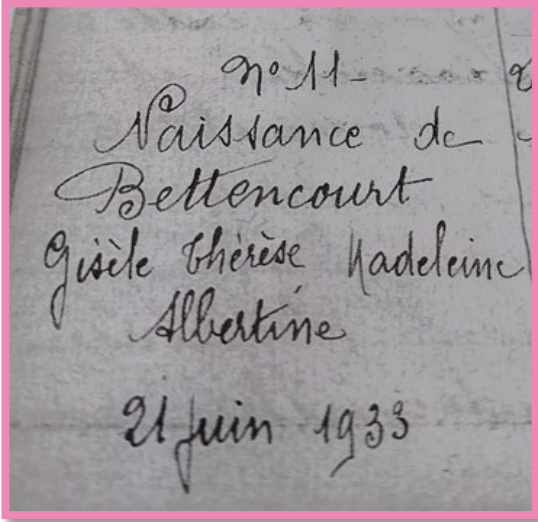 N° 11-
Naissance de
Bettencourt
Gisèle Thérèse Madeleine
Albertine
21 juin 1933